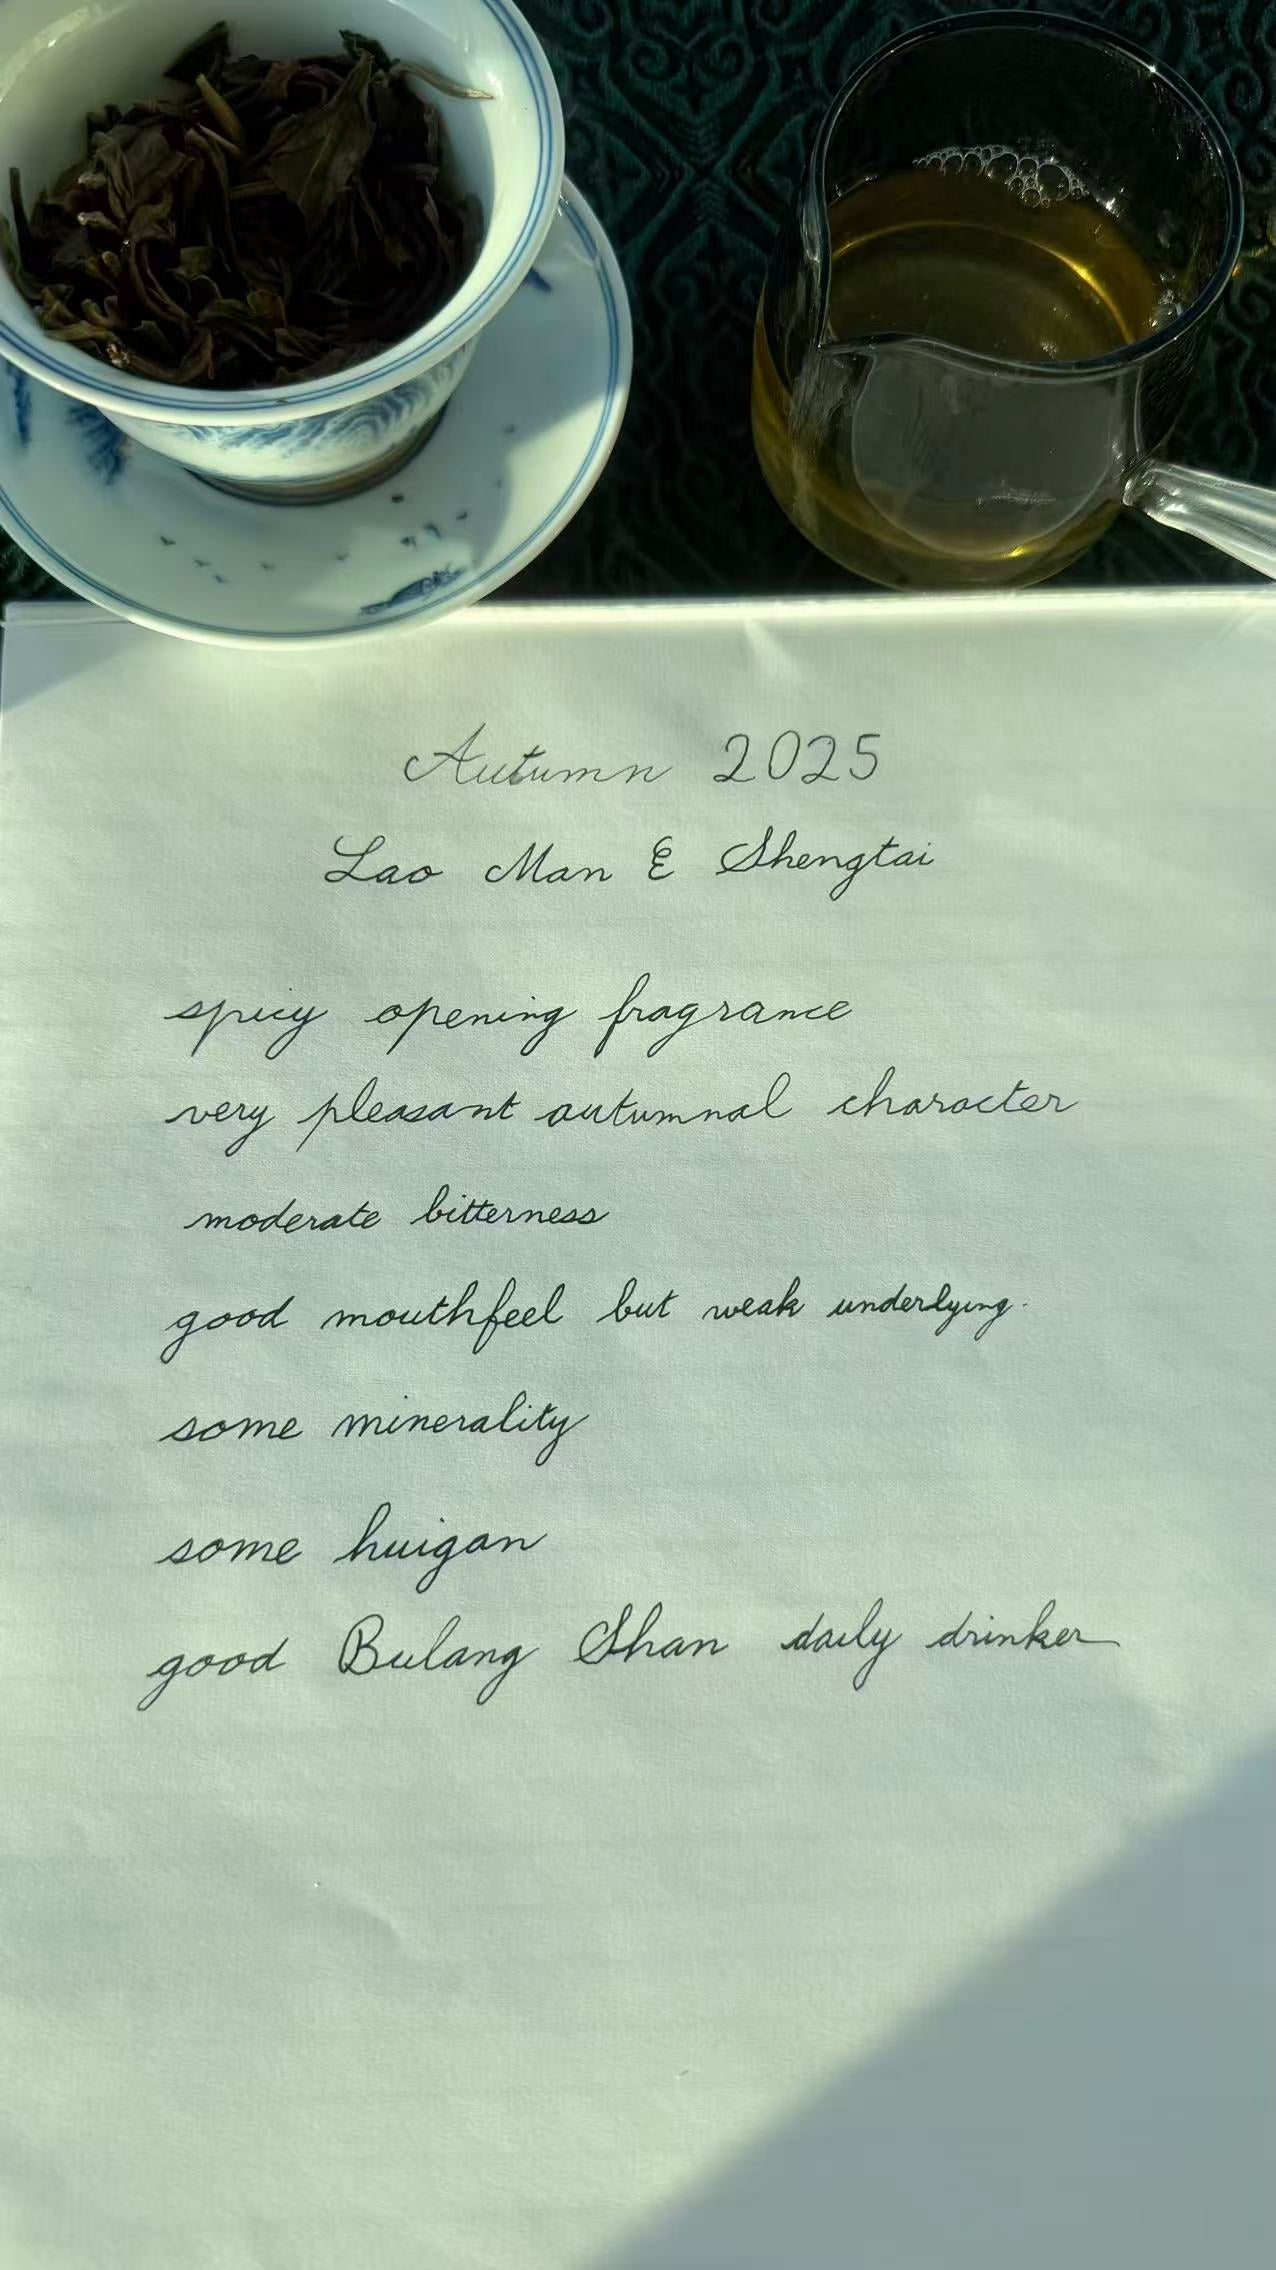 Autumn 2025
Lao Man E Shengtai
spicy opening fragrance
very pleasant autumnal character
moderate bitterness
good mouthfeel but weak underlying.
some minerality
some huigan
good Bulang Shan daily drinker